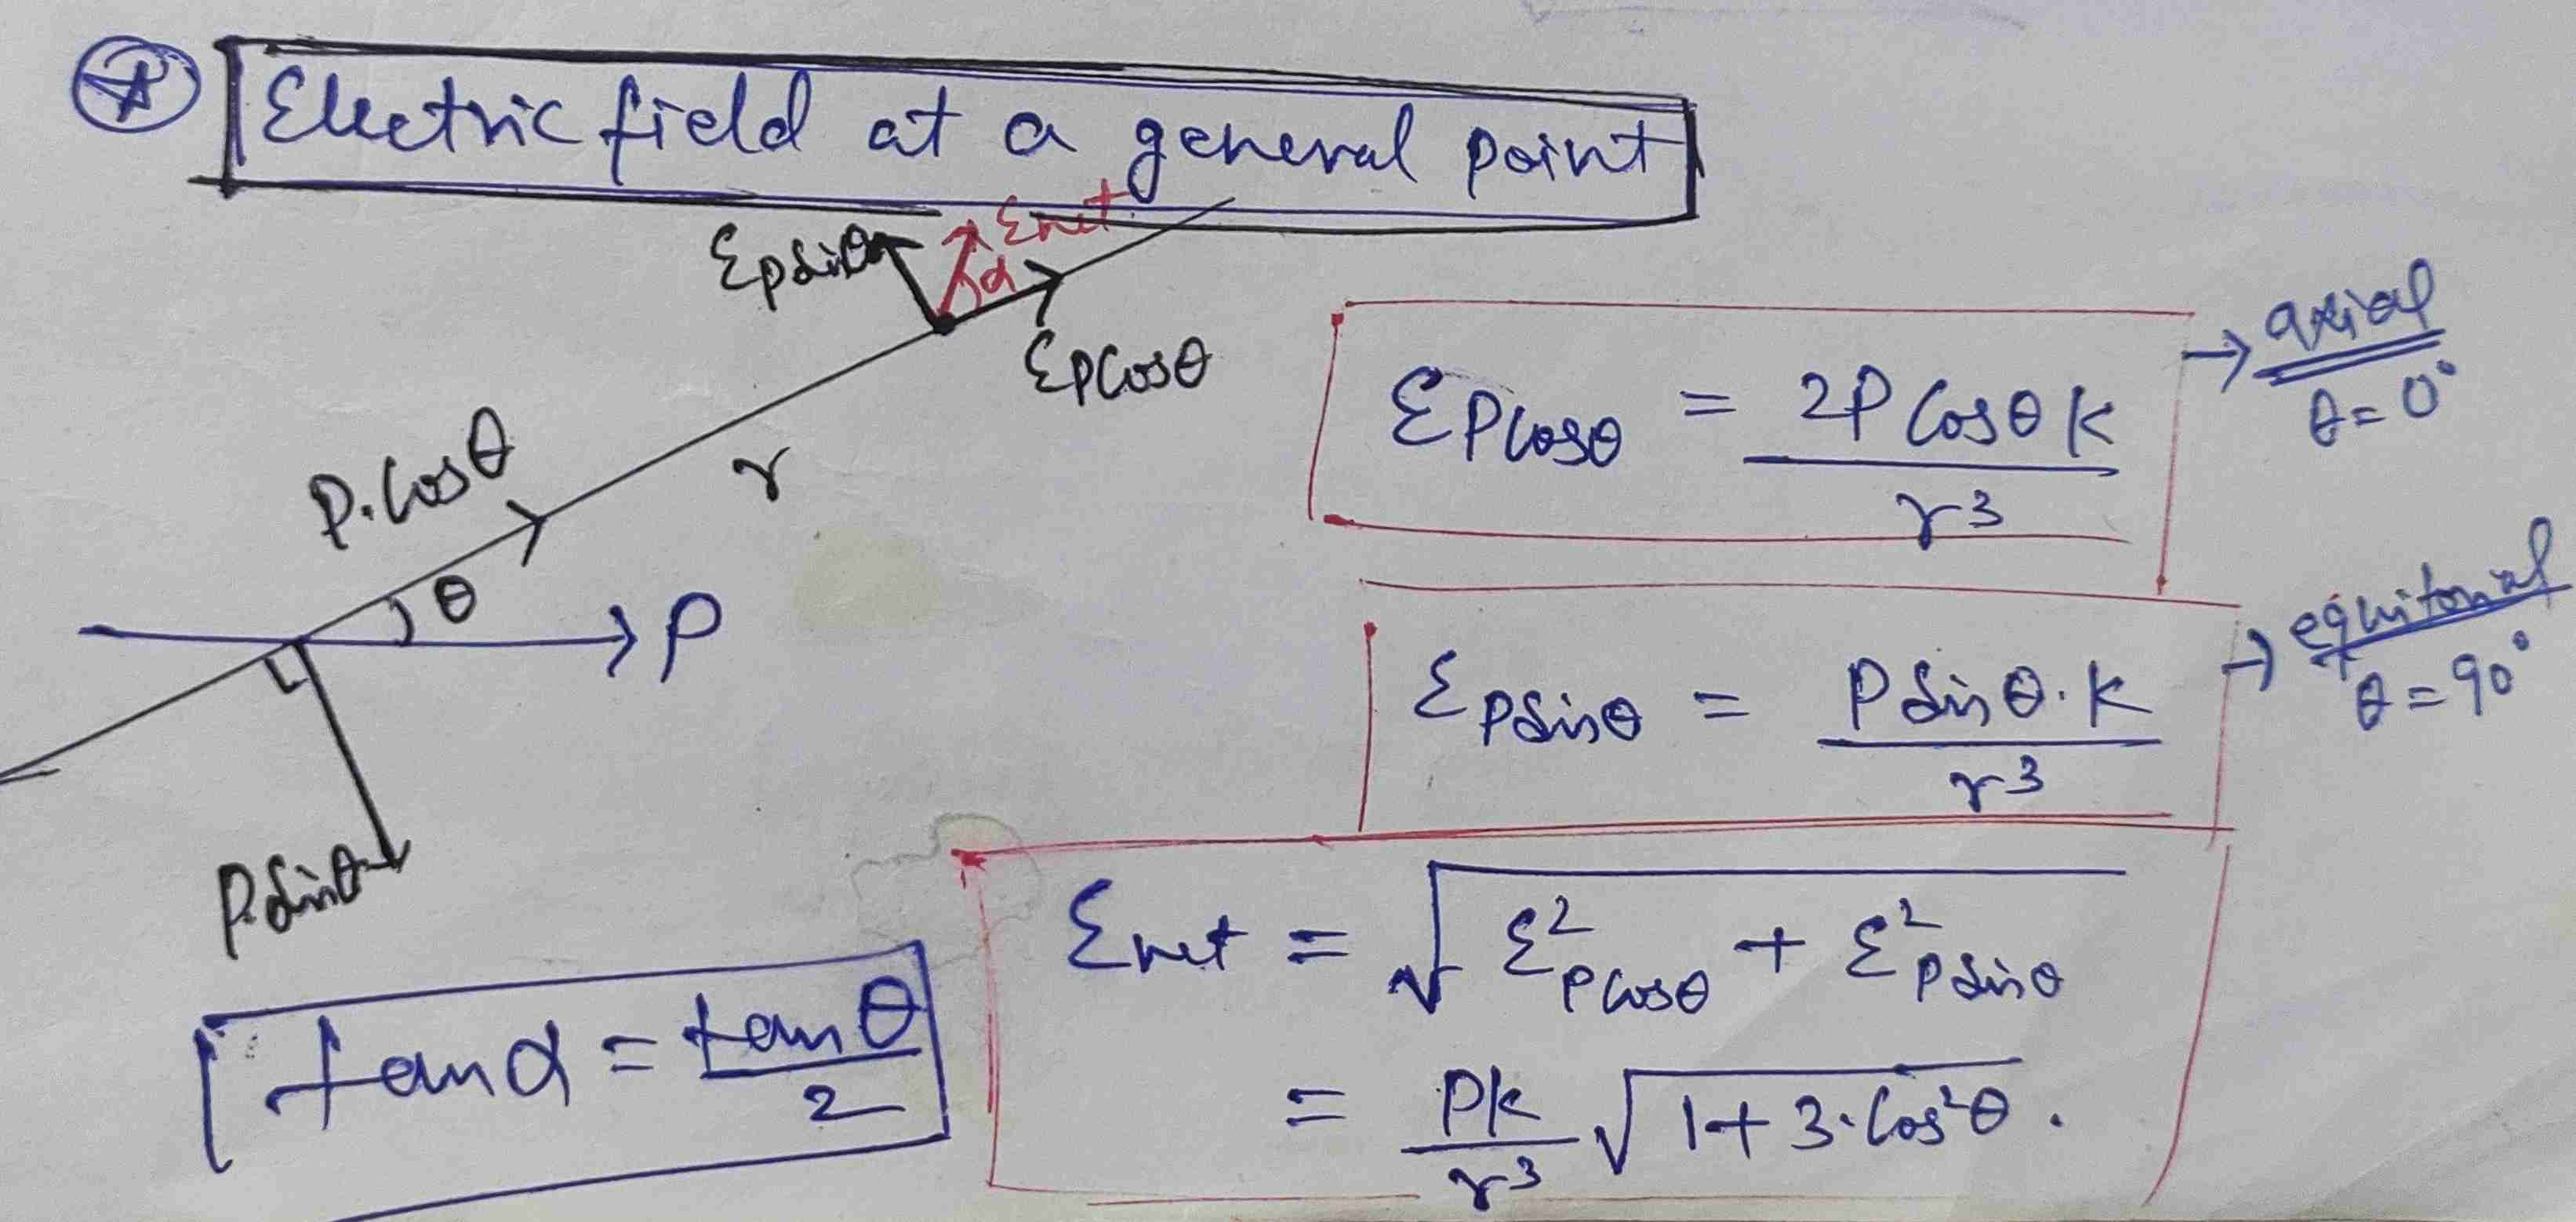 Electric field at a general point
EPsinθ
Enet
α
EPCosθ
P.Cosθ
r
θ
P
P.sinθ
tanα = tanθ / 2
EPCosθ = 2P Cosθ K / r³
→ axial
θ = 0°
EPsinθ = P sinθ . K / r³
→ equitorial
θ = 90°
Enet = √ E²PCosθ + E²Psinθ
= PK / r³ √ 1 + 3.Cos²θ .